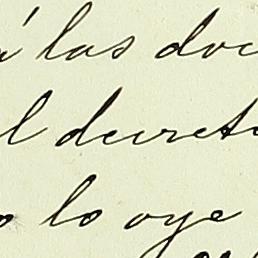 á las doc
el decreto
o lo oye